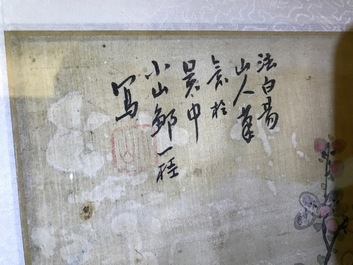 法白陽
山人筆
意於
吳中
小山鄒一桂
寫